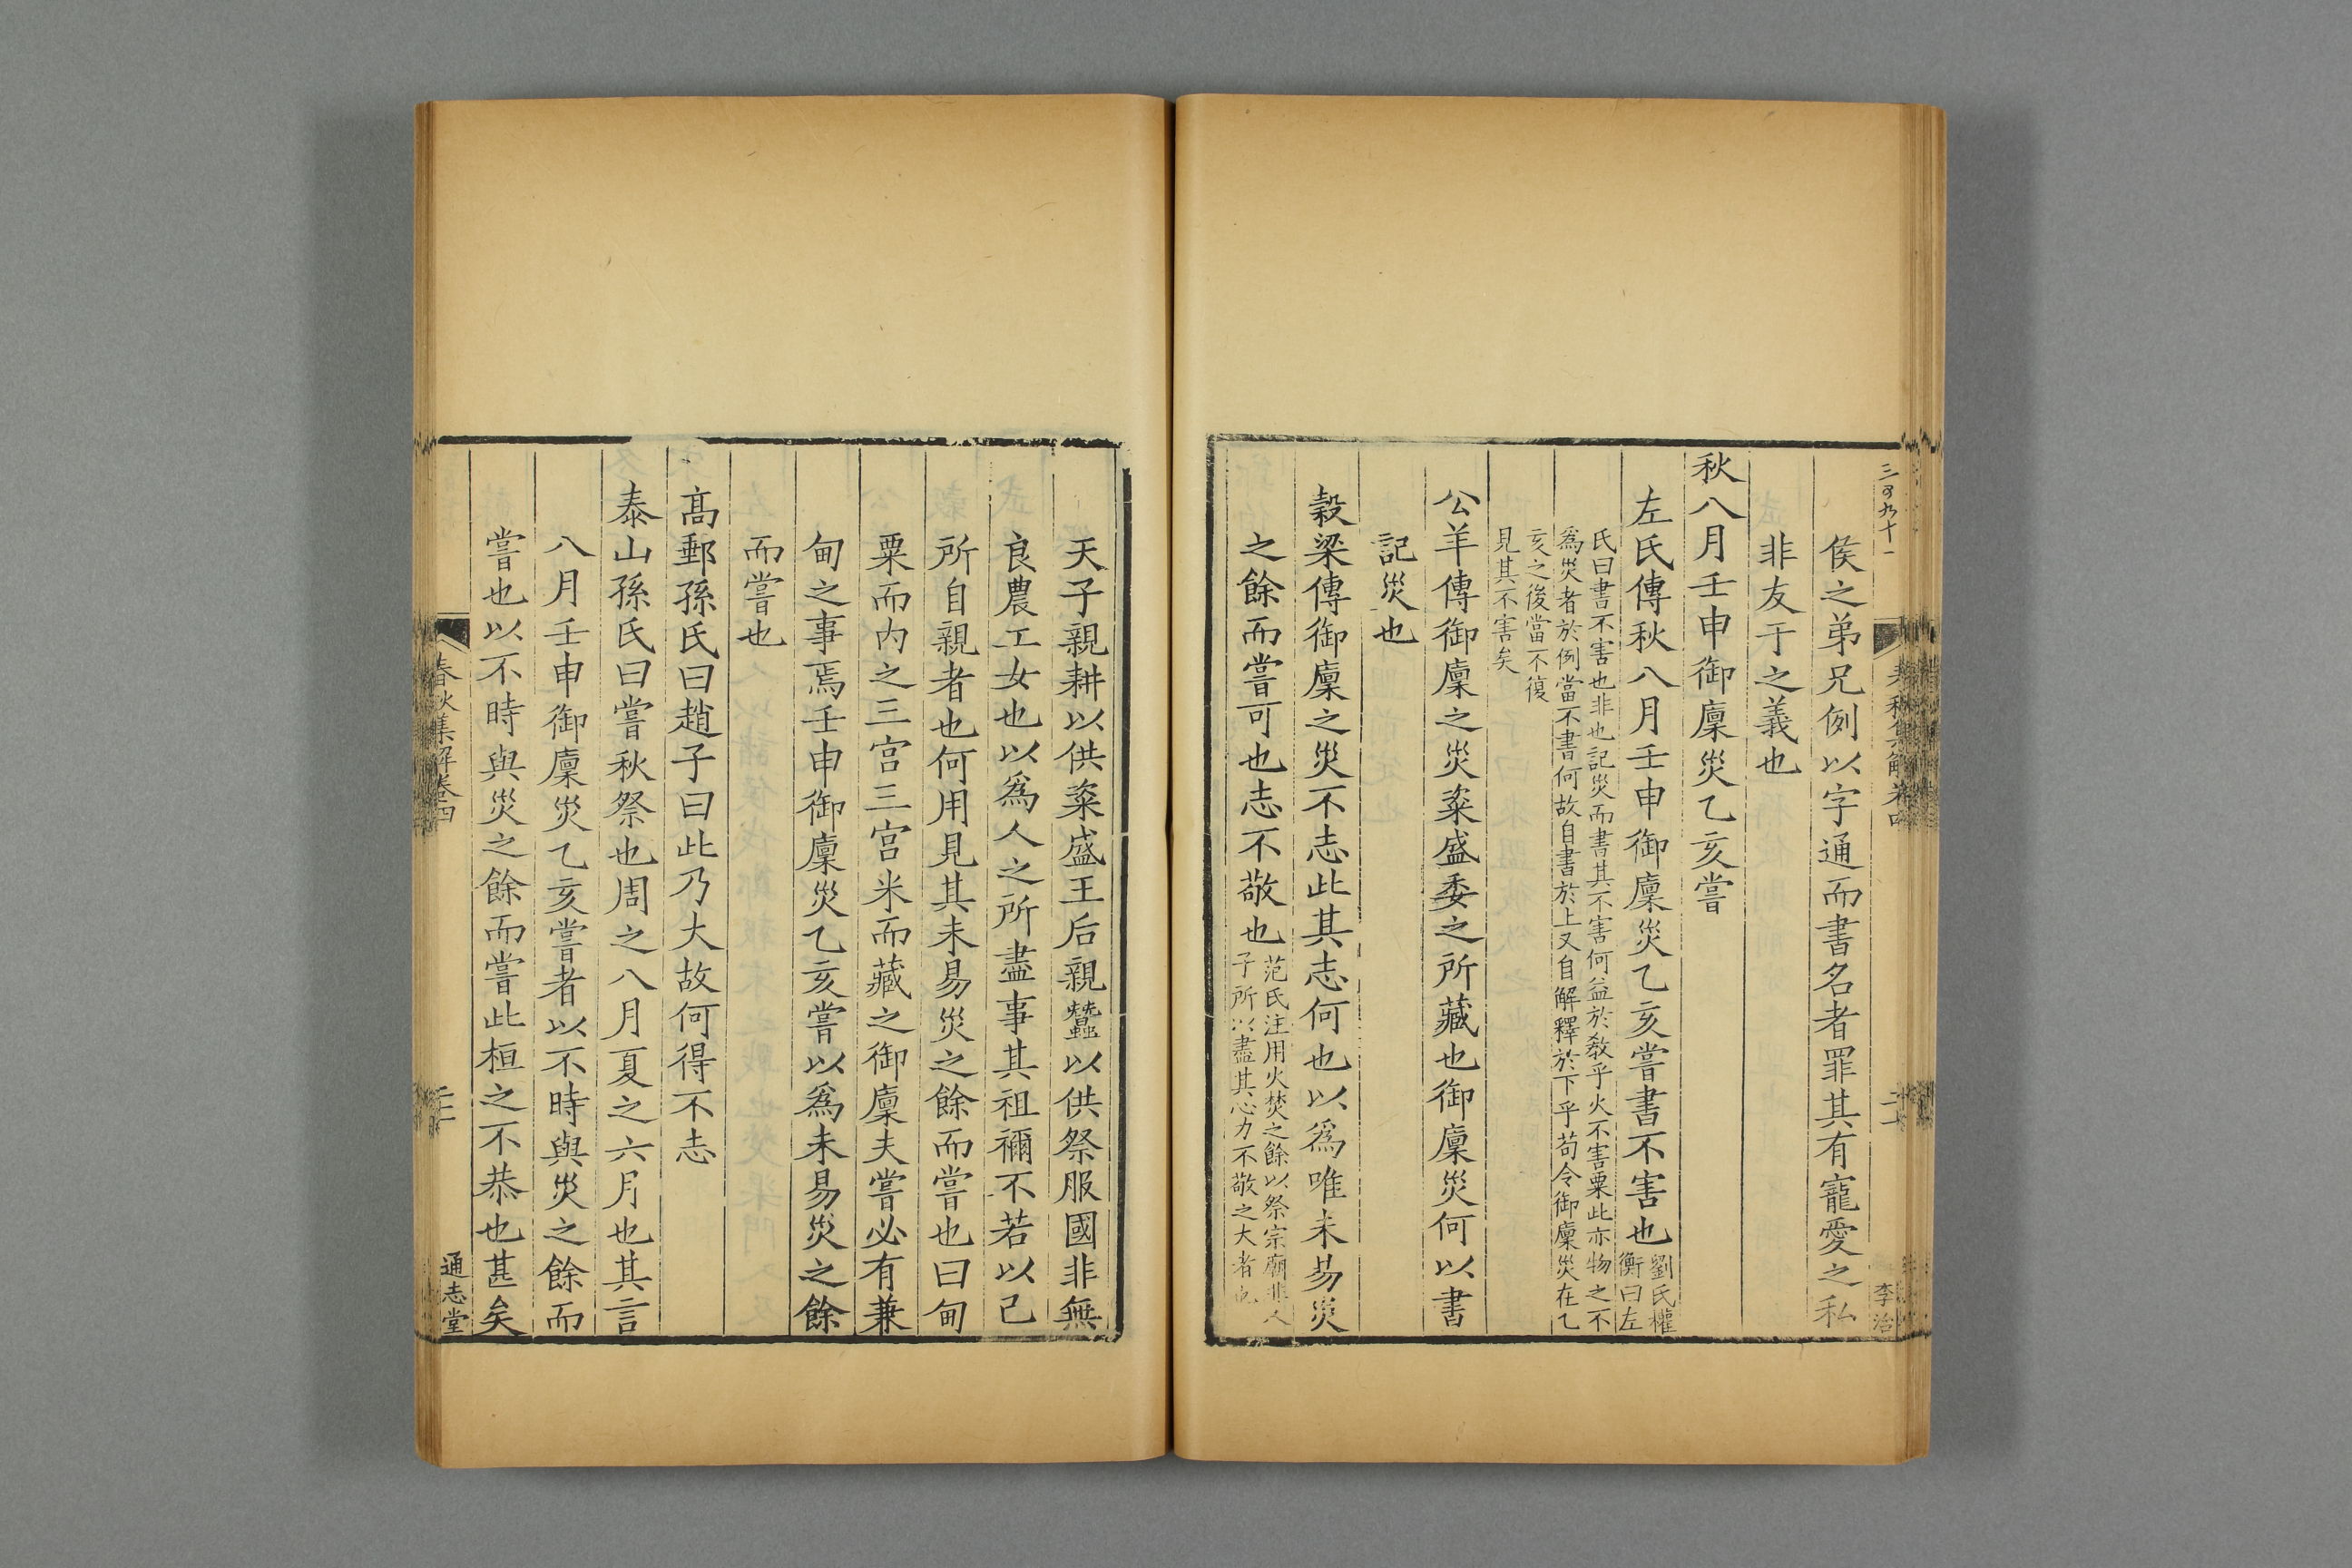 三百九十一
春秋集解卷四
二十
李治
侯之弟兄例以字通而書名者罪其有寵愛之私
非友于之義也
秋八月壬申御廩災乙亥嘗
左氏傳秋八月壬申御廩災乙亥嘗書不害也劉氏權衡曰左
氏曰書不害也非也記災而書其不害何益於教乎火不害粟此亦物之不
爲災者於例當不書何故自書於上又自解釋於下乎苟令御廩災在乙
亥之後當不復
見其不害矣
公羊傳御廩之災粢盛委之所藏也御廩災何以書
記災也
榖梁傳御廩之災不志此其志何也以爲唯未昜災
之餘而嘗可也志不敬也范氏注用火焚之餘以祭宗廟非人
子所以盡其心力不敬之大者也
天子親耕以供粢盛王后親蠶以供祭服國非無
良農工女也以爲人之所盡事其祖禰不若以己
所自親者也何用見其未易災之餘而嘗也曰甸
粟而內之三宮三宮米而藏之御廩夫嘗必有兼
甸之事焉壬申御廩災乙亥嘗以爲未易災之餘
而嘗也
高郵孫氏曰趙子曰此乃大故何得不志
泰山孫氏曰嘗秋祭也周之八月夏之六月也其言
八月壬申御廩災乙亥嘗者以不時與災之餘而
嘗也以不時與災之餘而嘗此桓之不恭也甚矣
春秋集解卷四
通志堂